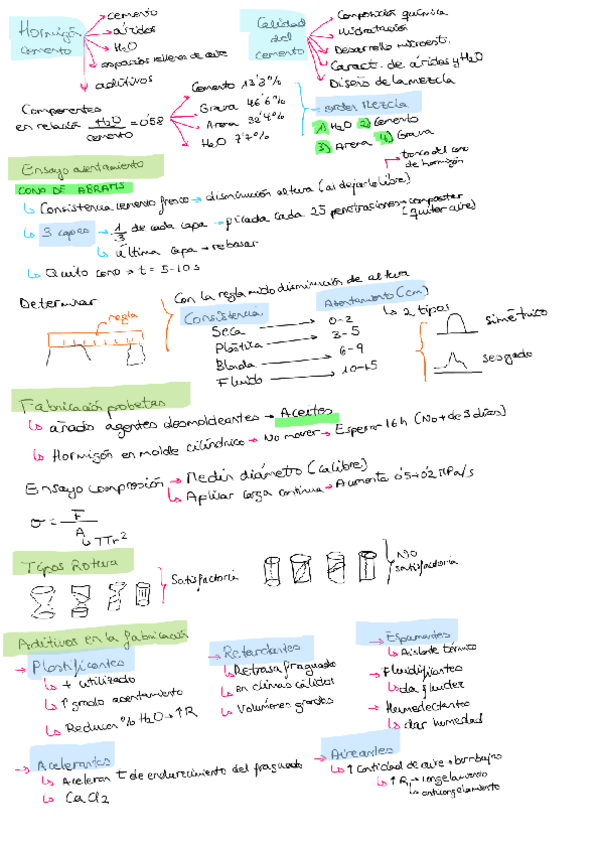 Hormigón cemento
→ cemento
→ áridos
→ H₂O
→ espacios rellenos de aire
→ aditivos
Calidad del cemento
→ Composición química
→ Hidratación
→ Desarrollo microest.
→ Caract. de áridos y H₂O
→ Diseño de la mezcla
Componentes
en relación H₂O/cemento = 0'58
Cemento 13'3%
Grava 46'6%
Arena 32'4%
H₂O 7'7%
Orden Mezcla
1) H₂O 2) Cemento
3) Arena 4) Grava
Ensayo asentamiento
tronco del cono de hormigón
CONO DE ABRAMS
↳ Consistencia cemento fresco → disminución altura (al dejarlo libre)
↳ 3 capas → 1/3 de cada capa → picada cada 25 penetraciones → compactar (quitar aire)
↳ última capa → rebosar
↳ Quito cono → t = 5-10 s
Determinar
regla
Con la regla mido disminución de altura
Consistencia Asentamiento (cm)
↳ 2 tipos
Seca → 0-2
Plástica → 3-5
Blanda → 6-9
Fluida → 10-15
simétrico
sesgado
Fabricación probetas
↳ añado agentes desmoldeantes → Aceites
↳ Hormigón en molde cilíndrico → No mover → Esperar 16h (No + de 3 días)
Ensayo compresión → Medir diámetro (calibre)
↳ Aplicar carga continua → Aumenta 0'5±0'2 MPa/s
σ = F/A
↳ πr²
Tipos Rotura
Satisfactoria
No satisfactoria
Aditivos en la fabricación
→ Plastificantes
↳ + utilizado
↳ ↑ grado asentamiento
↳ Reducen % H₂O → ↑R
→ Retardantes
↳ Retrasa fraguado
↳ en climas cálidos
↳ Volúmenes grandes
→ Espumantes
↳ Aislante térmico
→ Fluidificantes
↳ da fluidez
→ Humedectantes
↳ dar humedad
→ Acelerantes
↳ Aceleran t de endurecimiento del fraguado
↳ CaCl₂
→ Aireantes
↳ ↑ Cantidad de aire → burbujas
↳ ↑ R, → congelamiento
↳ anticongelamiento